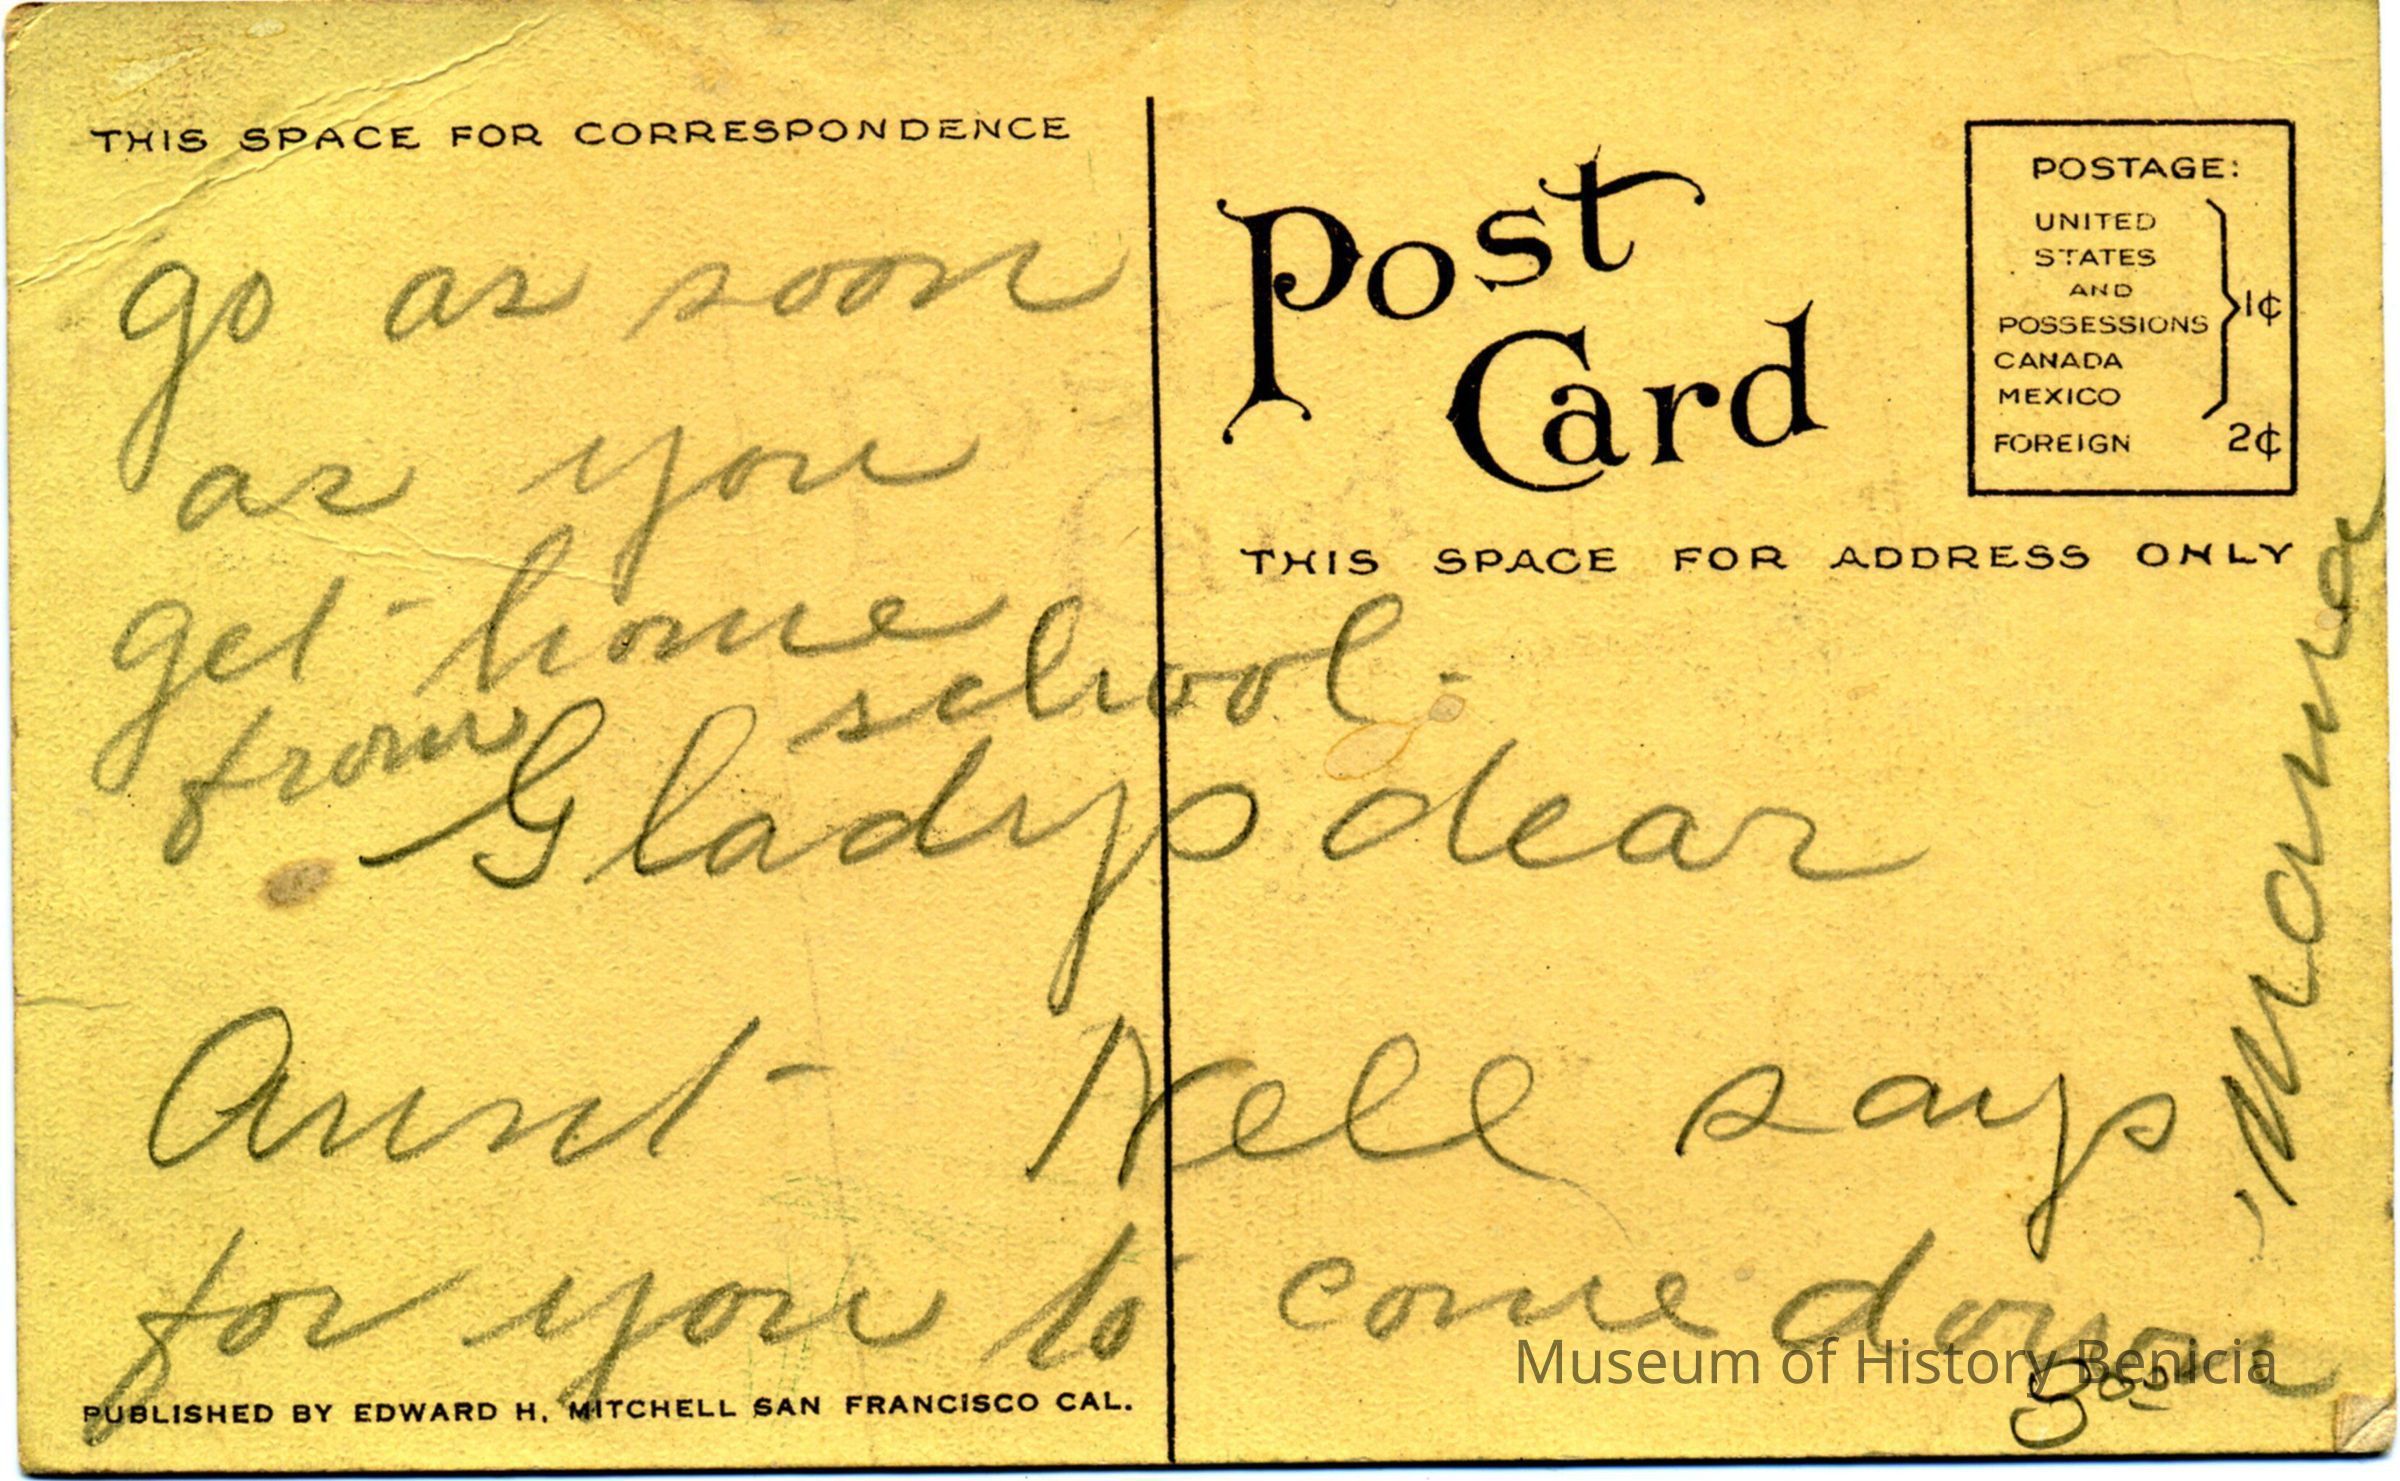 THIS SPACE FOR CORRESPONDENCE
go as soon
as you
get home
from school.
Gladys dear
Aunt Nell says
for you to come down
Mama
Post
Card
POSTAGE:
UNITED
STATES
AND
POSSESSIONS
CANADA
MEXICO
1¢
FOREIGN 2¢
THIS SPACE FOR ADDRESS ONLY
PUBLISHED BY EDWARD H. MITCHELL SAN FRANCISCO CAL.
Museum of History Benicia